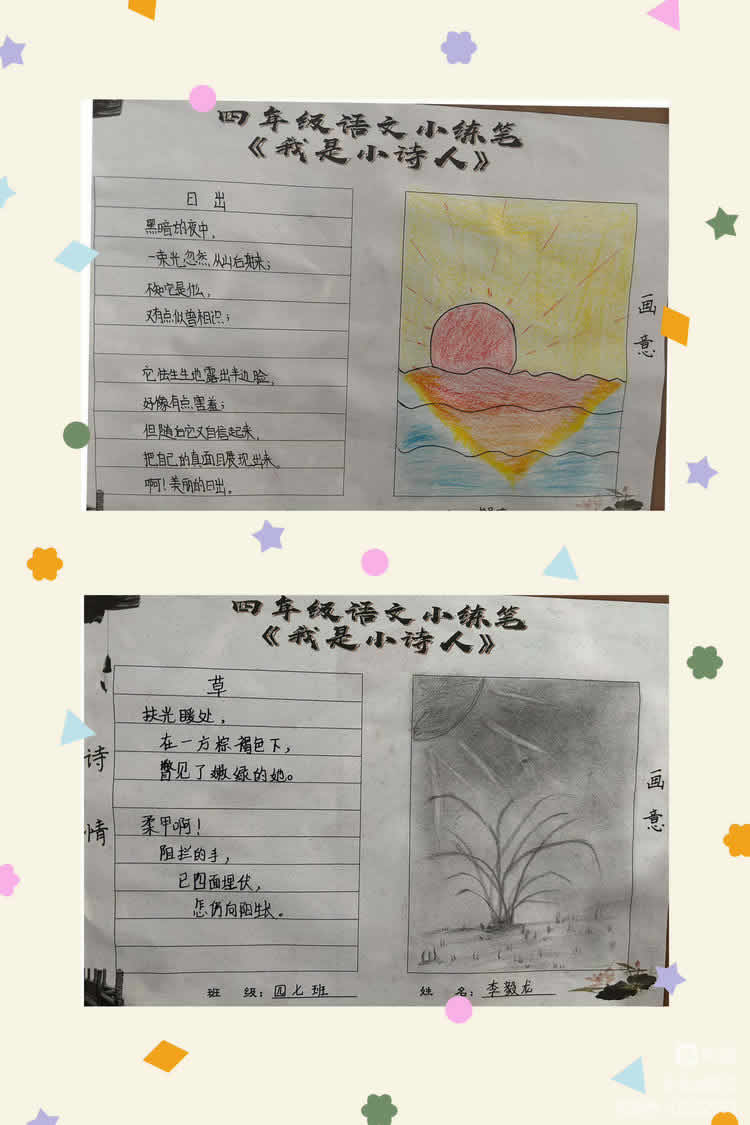 四年级语文小练笔
《我是小诗人》
日出
黑暗的夜中，
一束光，忽然，从山后射来；
不知它是什么，
又有点似曾相识；
它怯生生地露出半边脸，
好像有点害羞；
但随后它又自信起来，
把自己的真面目展现出来。
啊！美丽的日出。
画意
四年级语文小练笔
《我是小诗人》
诗情
草
扶光暖处，
在一方棕褐色下，
瞥见了嫩绿的她。
柔甲啊！
阻拦的手，
已四面埋伏，
怎仍向阳生长。
画意
班 级：四七班
姓 名：李毅龙